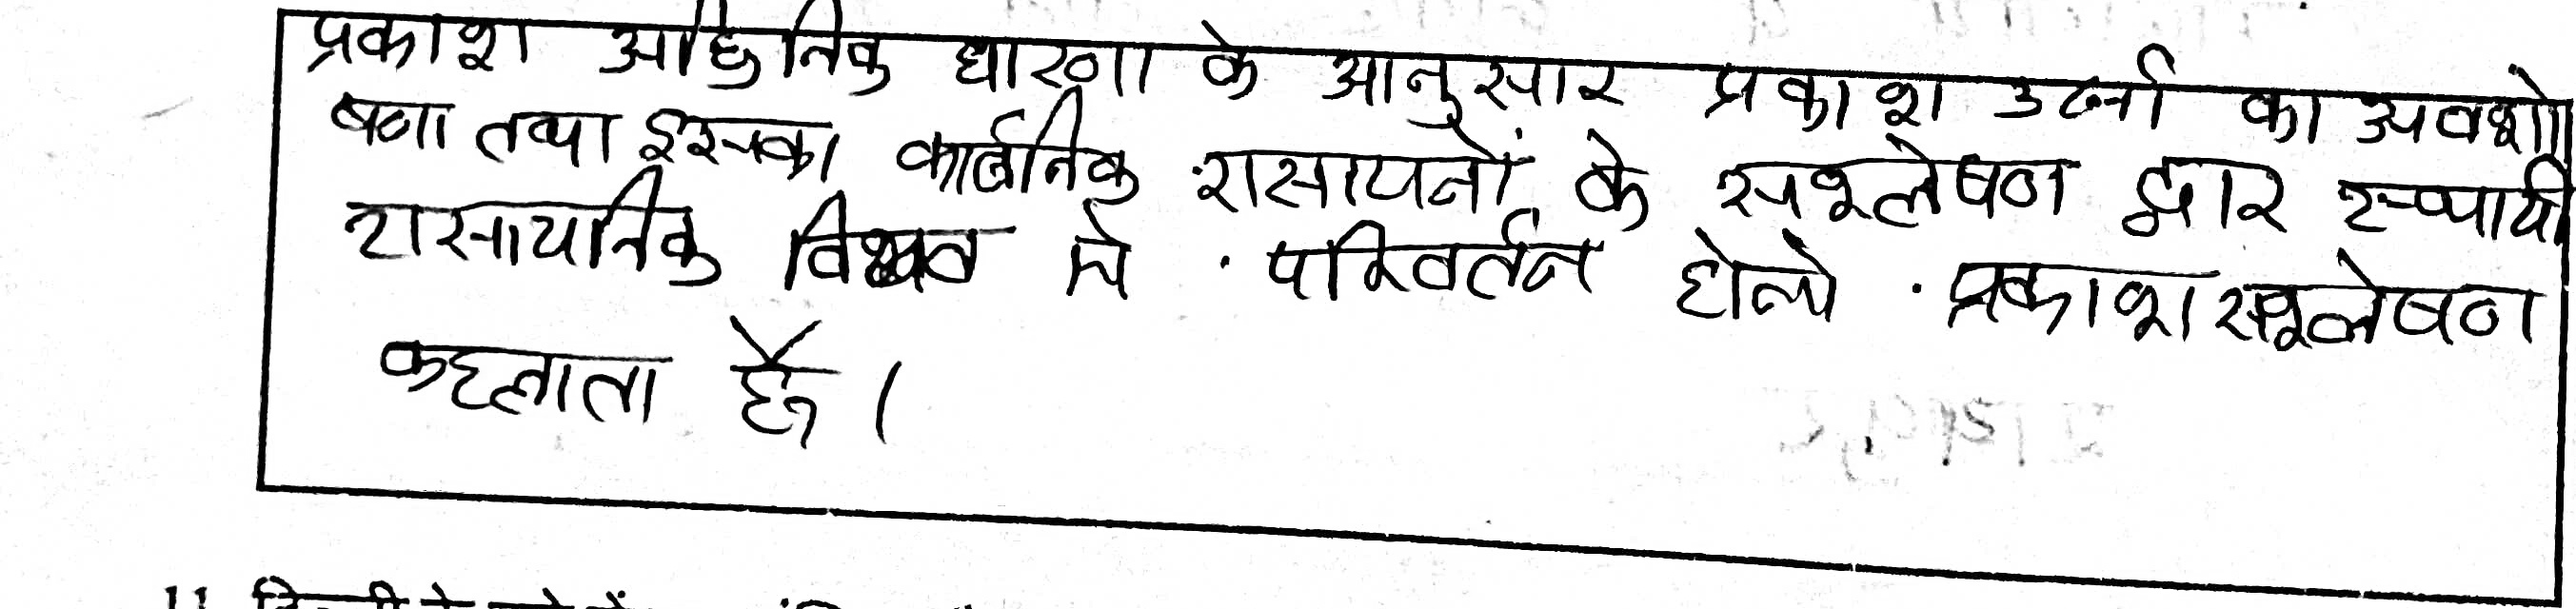 प्रकाश आधुनिक धारणा के आनुसार प्रकाश उर्जा का अवशो
षण तथा इसका कार्बनिक रासायनों के संश्लेषण द्वार स्थायी
रासायनिक विभव मे परिवर्तन होने प्रकाश संश्लेषण
कहलाता है।